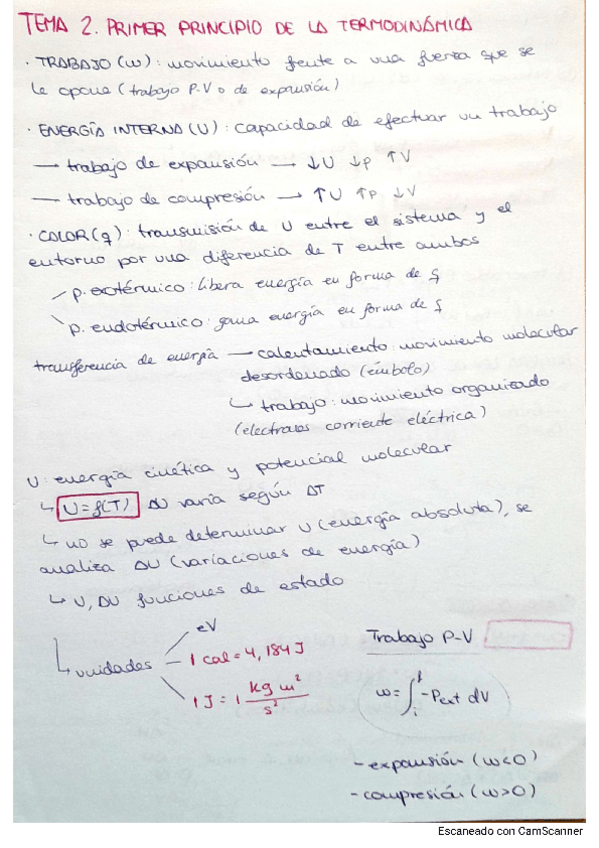 TEMA 2. PRIMER PRINCIPIO DE LA TERMODINÁMICA
· TRABAJO (w): movimiento frente a una fuerza que se
le opone (trabajo P·V o de expansión)
· ENERGÍA INTERNA (U): capacidad de efectuar un trabajo
→ trabajo de expansión → ↓U ↓P ↑V
→ trabajo de compresión → ↑U ↑P ↓V
· CALOR (q): transmisión de U entre el sistema y el
entorno por una diferencia de T entre ambos
p. exotérmico: libera energía en forma de q
p. endotérmico: gana energía en forma de q
transferencia de energía → calentamiento: movimiento molecular
desordenado (émbolo)
↳ trabajo: movimiento organizado
(electrones corriente eléctrica)
U: energía cinética y potencial molecular
↳ U = f(T) ΔU varía según ΔT
↳ no se puede determinar U (energía absoluta), se
analiza ΔU (variaciones de energía)
↳ U, ΔU funciones de estado
↳ unidades
eV
1 cal = 4,184 J
1 J = 1 kg m² / s²
Trabajo P-V
w = ∫ᵢᶠ -Pext dV
- expansión (w<0)
- compresión (w>0)
Escaneado con CamScanner